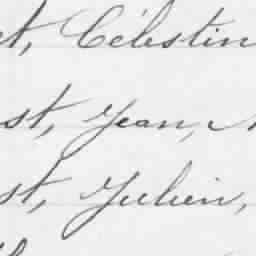 et, Célestin
st, Jean,
st, Julien,